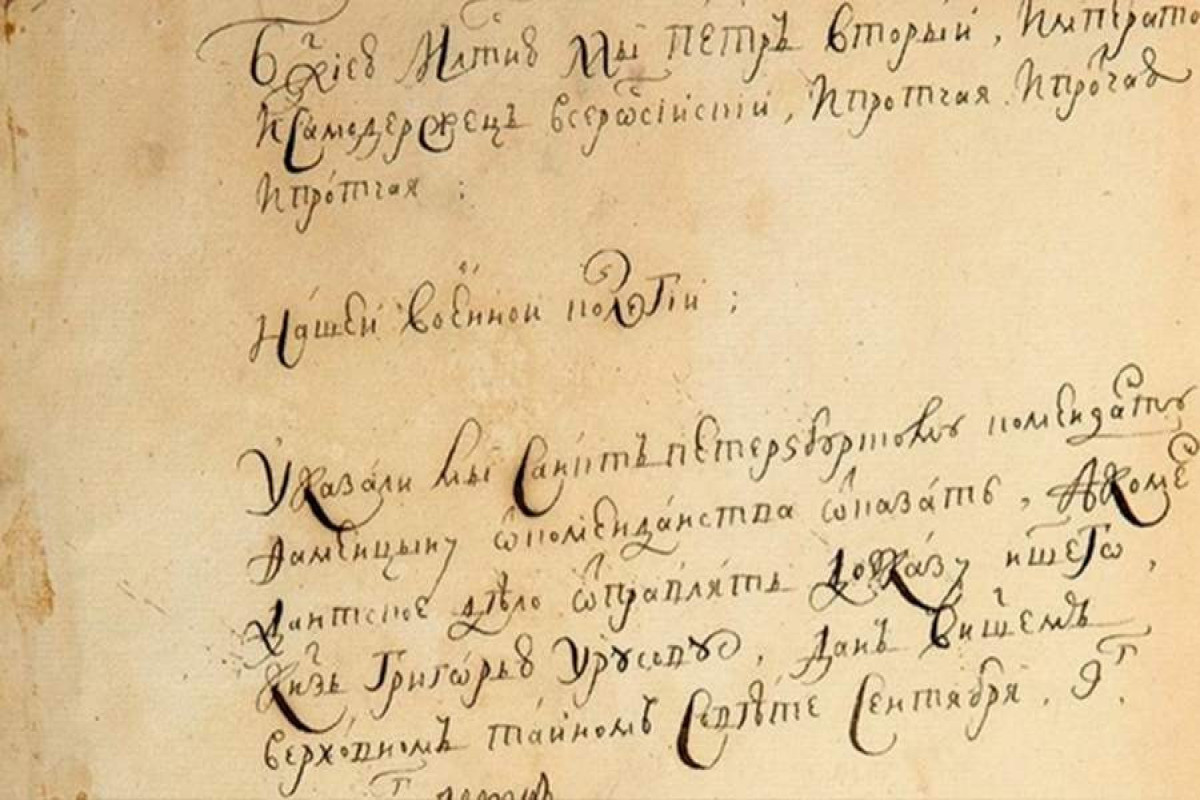 Бжиею Млтию Мы ПЕтръ вторыи, Императо
И Самодержецъ всерѡсiискiи, Ипротчая Ипрочая
Ипротчая :
Нашей Военной колегiи ;
Указали мы Санктъ пЕтерѕбургскому комЕнданту
ѿкомЕнданства ѿказать, Акоме
дантское дѣло ѿправлять доуказу нашегѡ,
Кнзь Григорью Урусову, Данъ Внашемъ
верховномъ таиномъ Совѣте Сентября, 9г.